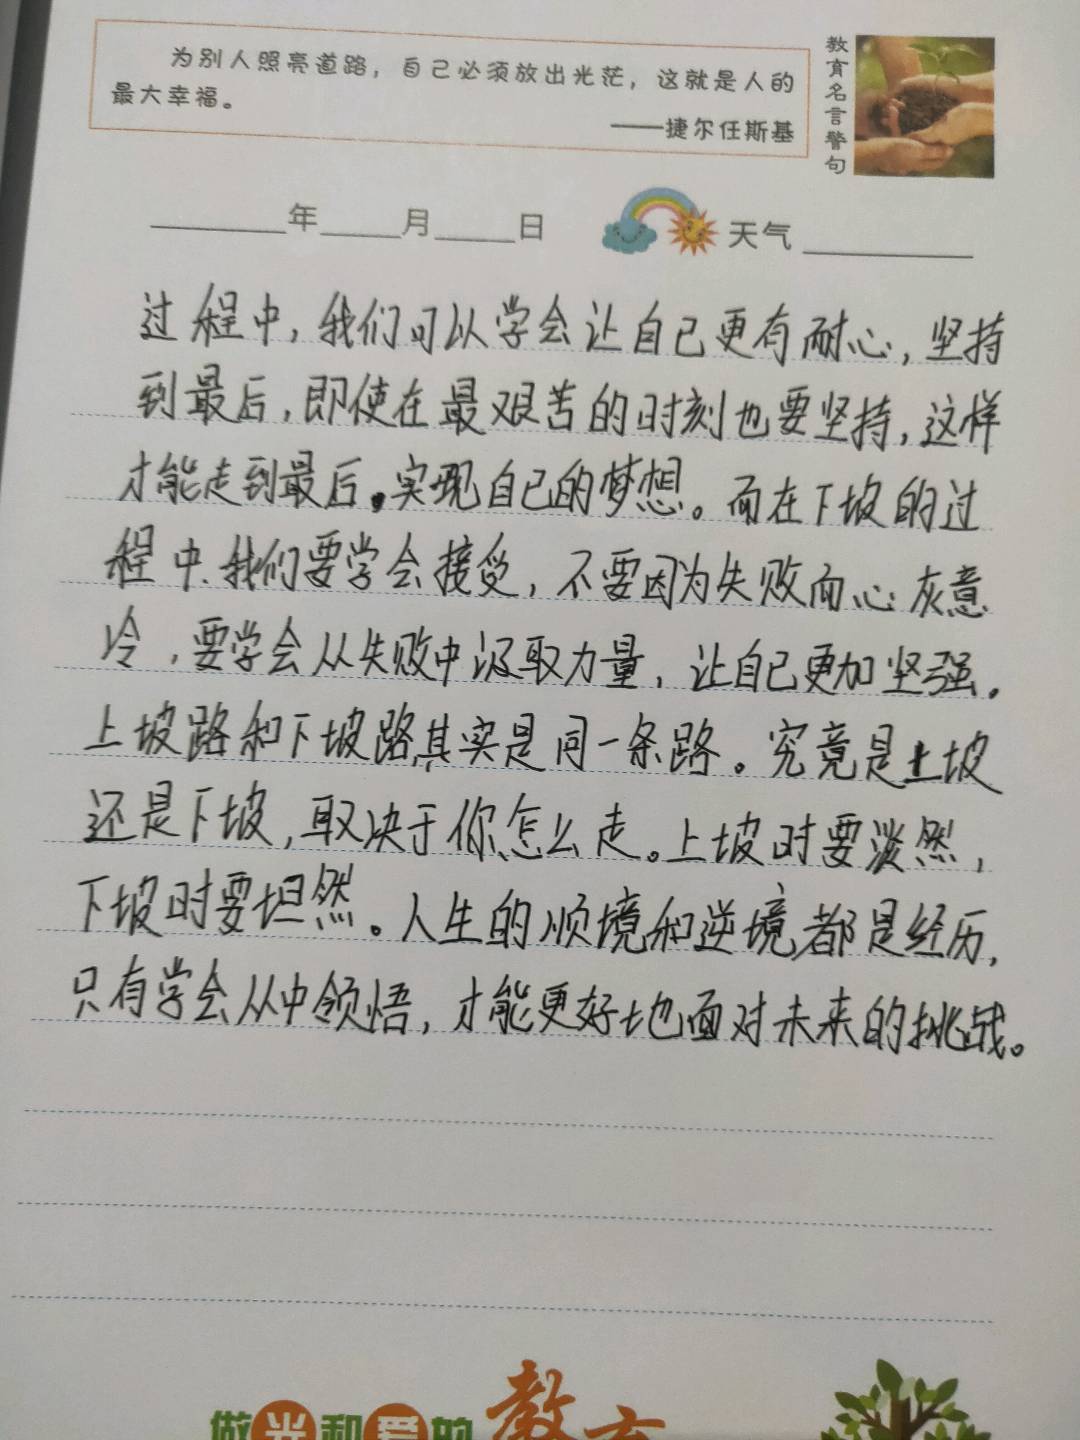 为别人照亮道路，自己必须放出光茫，这就是人的
最大幸福。
——捷尔任斯基
教育名言警句
年 月 日 天气
过程中，我们可以学会让自己更有耐心，坚持
到最后，即使在最艰苦的时刻也要坚持，这样
才能走到最后。实现自己的梦想。而在下坡的过
程中、我们要学会接受，不要因为失败而心灰意
冷，要学会从失败中汲取力量，让自己更加坚强。
上坡路和下坡路其实是同一条路。究竟是上坡
还是下坡，取决于你怎么走。上坡时要淡然，
下坡时要坦然。人生的顺境和逆境都是经历，
只有学会从中领悟，才能更好地面对未来的挑战。
做光和爱的教育